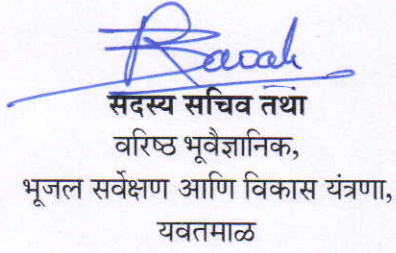 सदस्य सचिव तथा
वरिष्ठ भूवैज्ञानिक,
भूजल सर्वेक्षण आणि विकास यंत्रणा,
यवतमाळ